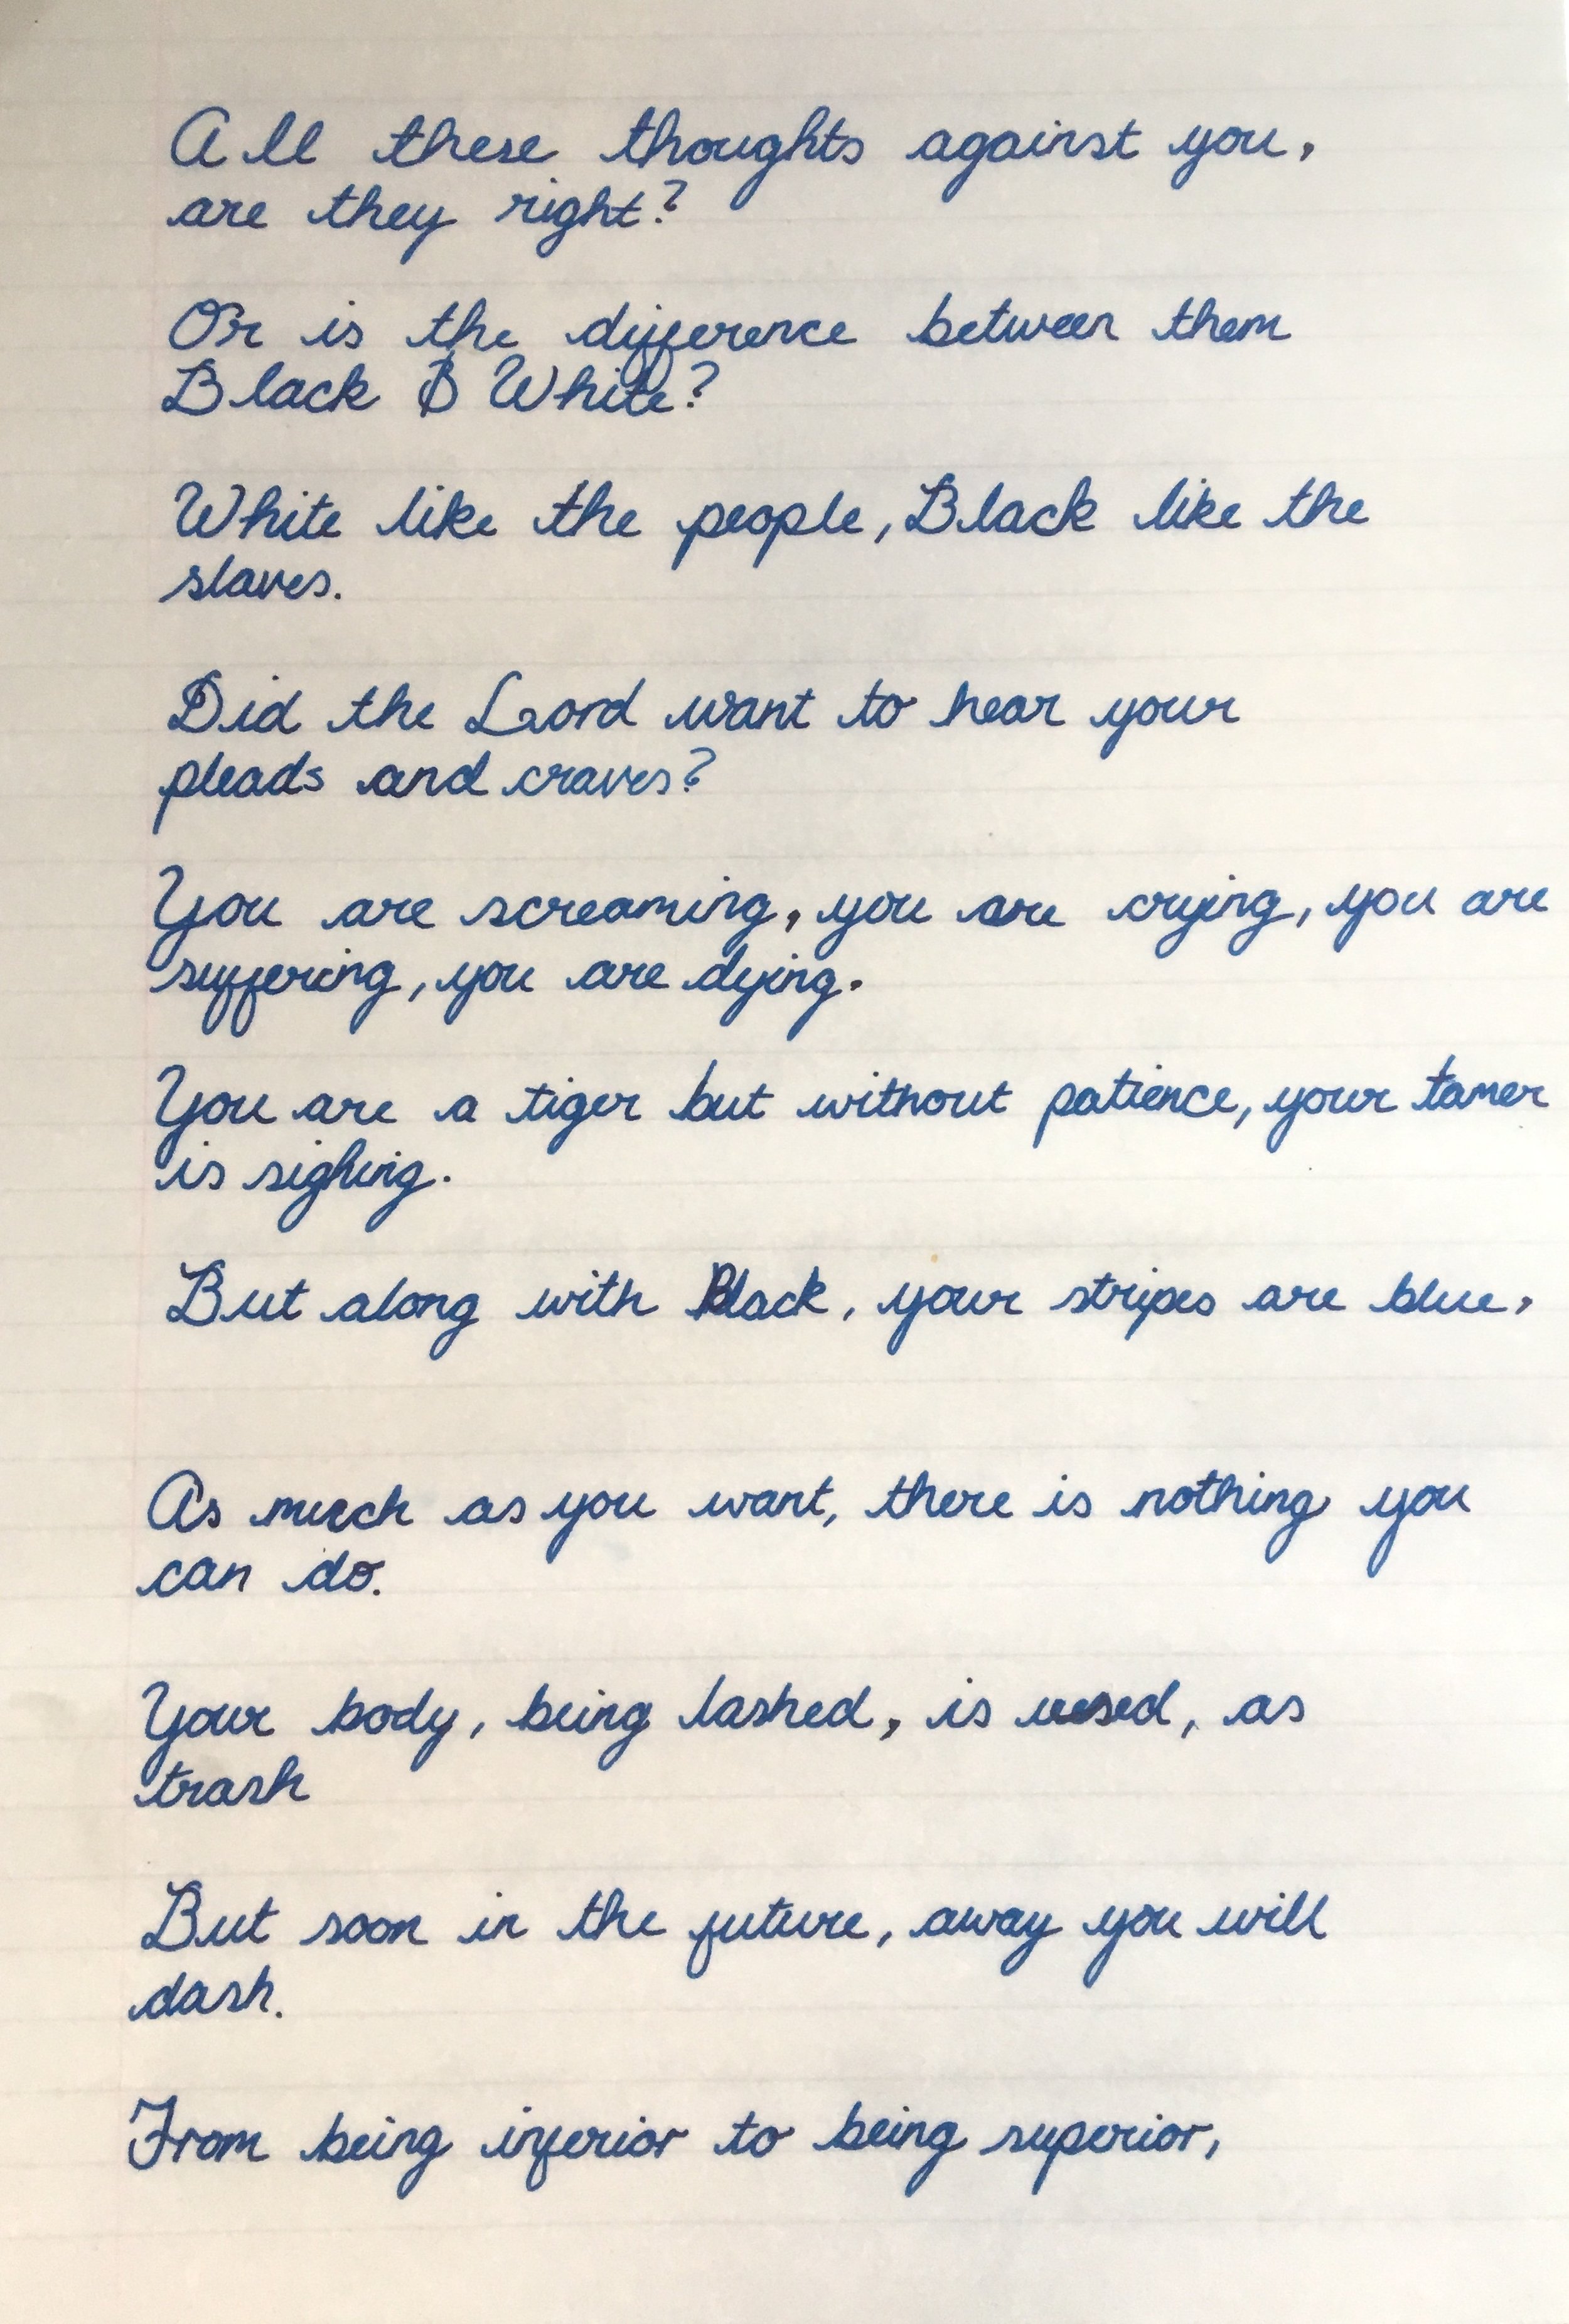 All these thoughts against you,
are they right?
Or is the difference between them
Black & White?
White like the people, Black like the
slaves.
Did the Lord want to hear your
pleads and craves?
You are screaming, you are crying, you are
suffering, you are dying.
You are a tiger but without patience, your tamer
is sighing.
But along with Black, your stripes are blue,
As much as you want, there is nothing you
can do.
Your body, being lashed, is used, as
trash
But soon in the future, away you will
dash.
From being inferior to being superior,